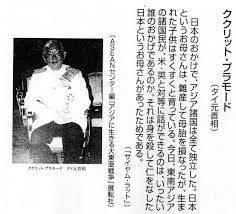 ククリット・プラモード
（タイ元首相）
日本のおかげで、アジア諸国は全て独立した。日本
というお母さんは、難産して母胎を損なったが、生ま
れた子供はすくすくと育っている。今日、東南アジア
の諸国民が、米・英と対等に話ができるのは、いったい
誰のおかげであるのか。それは身を殺して仁をなした
日本というお母さんがあったためである。
（サイヤム・ラット）
（ASEANセンター編『アジアに生きる大東亜戦争』展転社）
ククリット・プラモード　タイ元首相